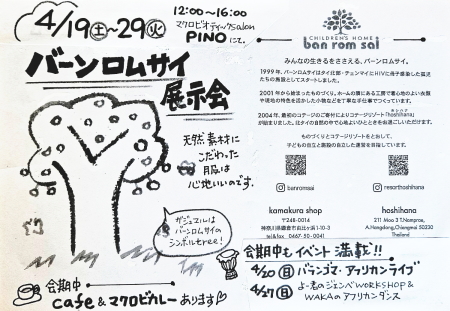 4/19(土)~29(火)
12:00~16:00
マクロビオティックsalon
PINOにて。
バーンロムサイ
展示会
天然素材に
こだわった
服は
心地いいのです。
ガジュマルは
バーンロムサイの
シンボルですョ!
会期中
cafe&マクロビカレーあります♡
CHILDREN'S HOME
ban rom sai
みんなの生きるをささえる、バーンロムサイ。
1999年、バーンロムサイはタイ北部・チェンマイにHIVに母子感染した孤児
たちの施設としてスタートしました。
2001年から始まったものづくり。ホームの隣にある工房で着心地のよい衣服
や現地の特色を活かした小物などを丁寧な手仕事でつくっています。
2004年、最初のコテージのご寄付によりコテージリゾート「hoshihana」
が始まりました。北タイの自然の中で心地よいひとときをお過ごしいただけます。
ものづくりとコテージリゾートをとおして、
子どもの自立と施設の自立した運営を目指しています。
banromsai
resorthoshihana
kamakura shop
〒248-0016
神奈川県鎌倉市長谷1-10-3
tel&fax 0467-50-0041
hoshihana
211 Moo 3 T.Namprae,
A.Hangdong,Chiangmai 50230
Thailand
会期中もイベント満載!!
4/20(日)バラシゴマ・アフリカンライブ
4/27(日)よし君のジェンベWORKSHOP&
WAKAのアフリカンダンス